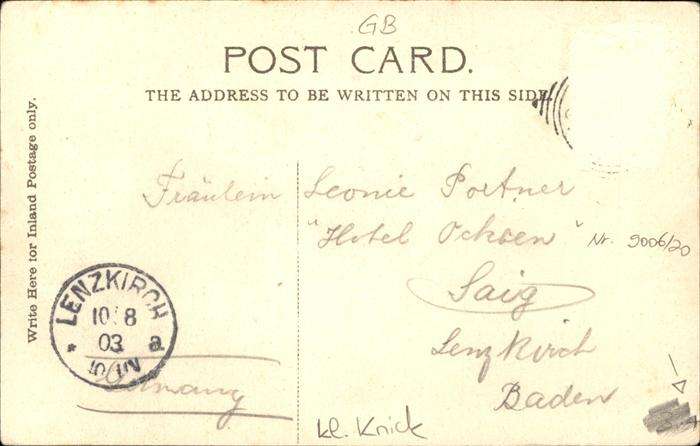 GB
POST CARD.
THE ADDRESS TO BE WRITTEN ON THIS SIDE.
Write Here for Inland Postage only.
Fräulein Leonie Portner
"Hotel Ochsen" Nr. 9006/20
Saig
Lenzkirch
Baden
LENZKIRCH
10/8
03 a
Germany
kl. Knick